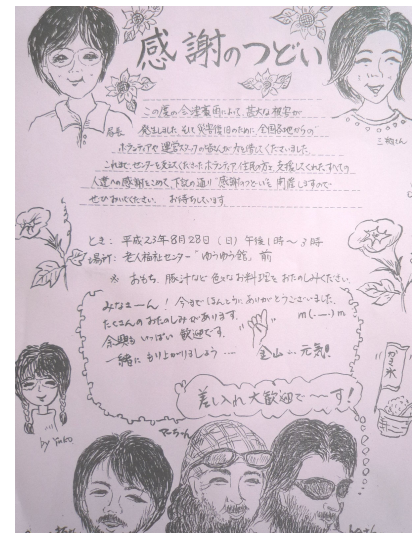 感謝のつどい
この度の会津豪雨によって、甚大な被害が
発生しました。そして災害復旧のために全国各地からの
ボランティアや運営スタッフの皆さんが力を貸してくださいました。
これまでセンターを支えてくださったボランティア、住民の方々、支援してくれたすべての
人達への感謝をこめて、下記の通り「感謝のつどい」を開催しますので
ぜひおいでください。お待ちしています。
局長
三瓶さん
とき: 平成23年8月28日(日)午後1時〜3時
場所: 老人福祉センター「ゆうゆう館」前
※ おもち、豚汁など色々なお料理をおたのしみください。
みなさーん!今までほんとうにありがとうございました。
たくさんのおたのしみがあります。 m(.__.)m
余興もいっぱい 歓迎です。
一緒にもり上がりましょう… 金山…元気!
差し入れ大歓迎で〜〜す!
かき氷
by Yuko
まーちゃん